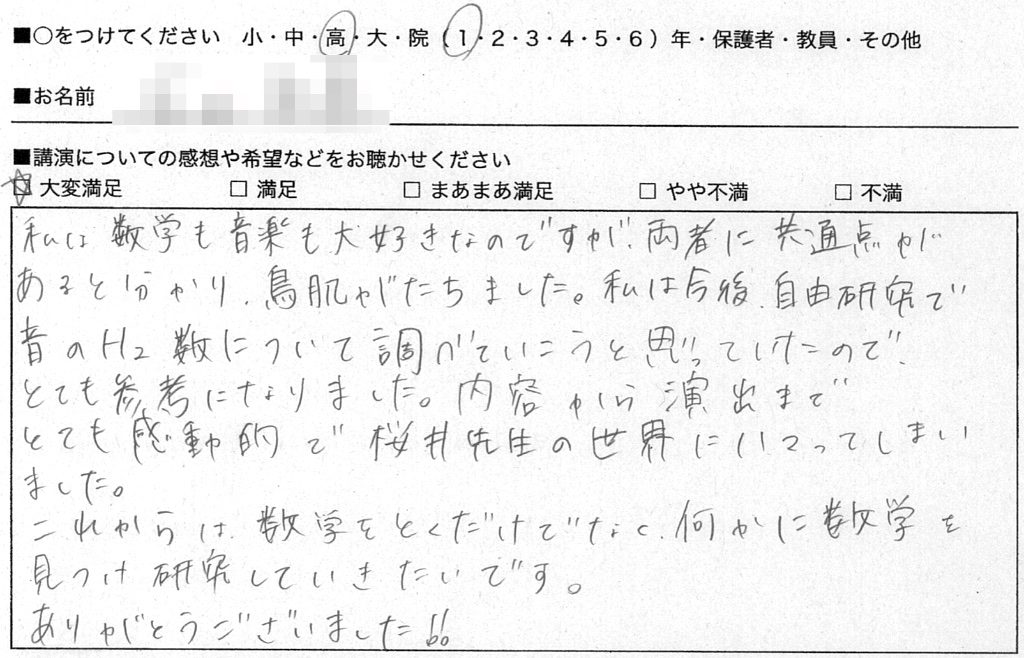 ■○をつけてください 小・中・高・大・院（1・2・3・4・5・6）年・保護者・教員・その他
■お名前
■講演についての感想や希望などをお聴かせください
□ 大変満足 □ 満足 □ まあまあ満足 □ やや不満 □ 不満
私は数学も音楽も大好きなのですが、両者に共通点が
あると分かり、鳥肌がたちました。私は今後、自由研究で
音のHz数について調べていこうと思っていたので、
とても参考になりました。内容から演出まで
とても感動的で桜井先生の世界にハマってしまい
ました。
これからは、数学をとくだけでなく、何かに数学を
見つけ研究していきたいです。
ありがとうございました!!